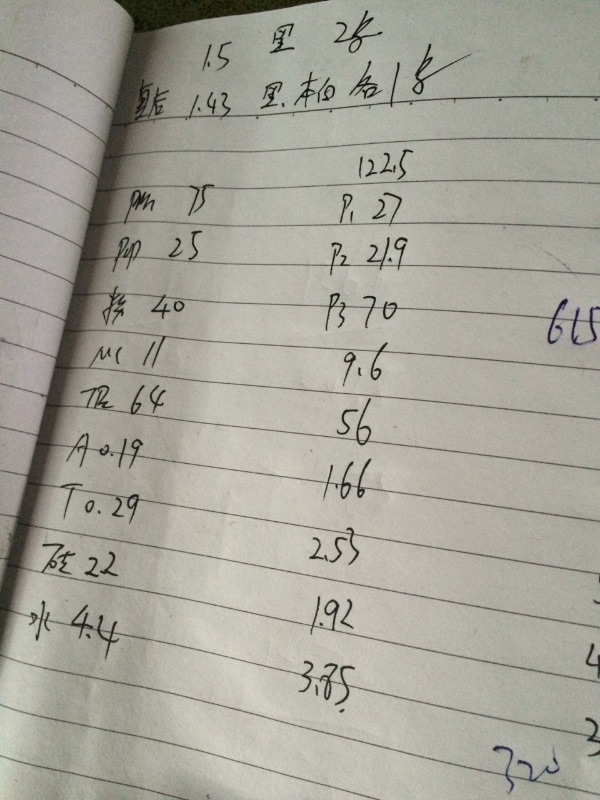 1.5 黑 2条
复后 1.43 黑.本白各1条
122.5
pm 75 P1 27
pp 25 P2 21.9
40 P3 70 615
MC 11 9.6
TR 64 56
A 0.19 1.66
T 0.29 2.53
硅 22 1.92
水 4.4 3.85
4
3
320